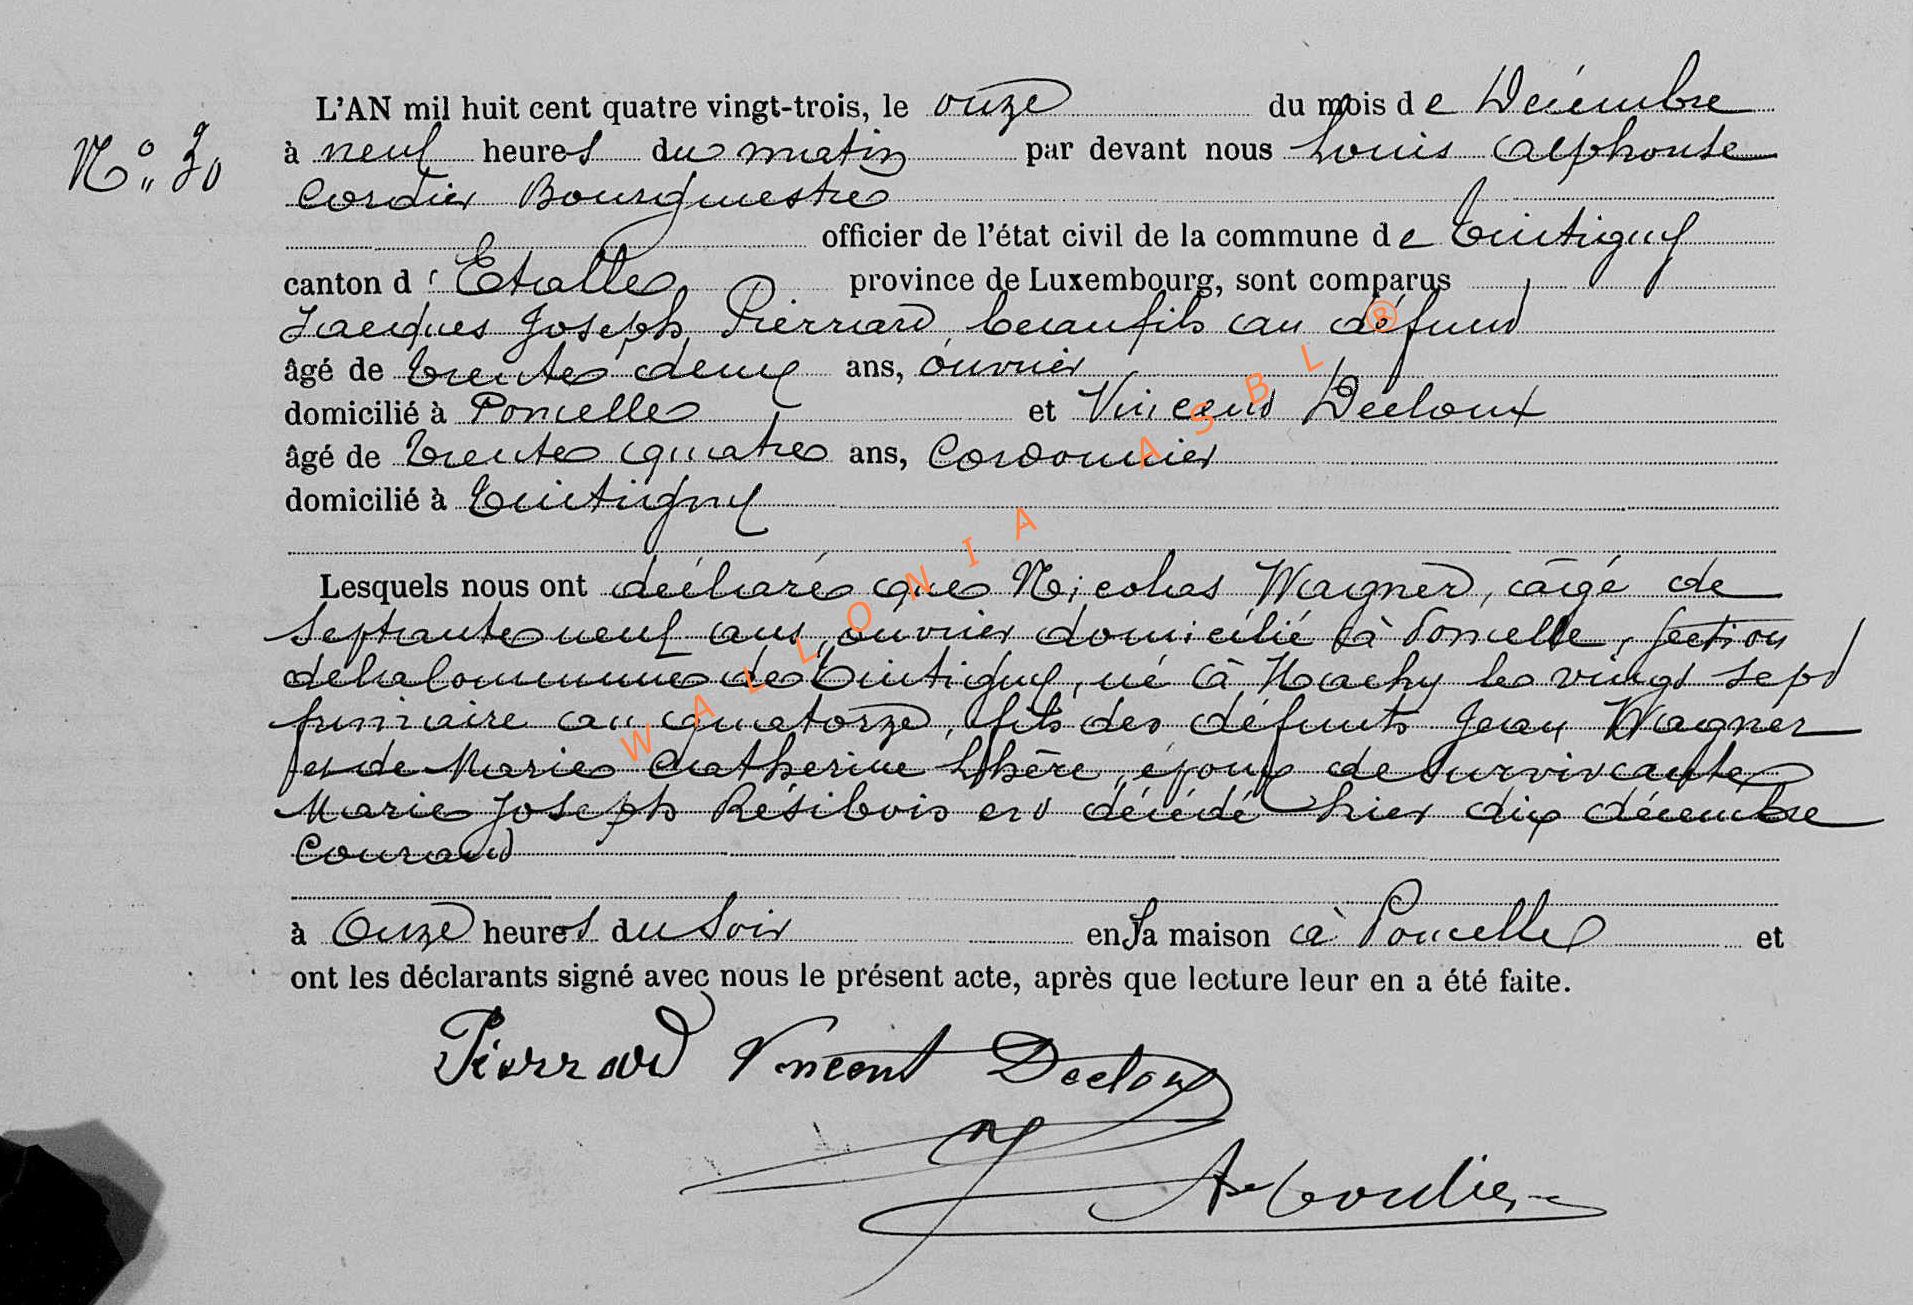 L'AN mil huit cent quatre vingt-trois, le onze du mois de Décembre
N° 30
à neuf heures du matin par devant nous Louis Alphonse
Cordier Bourgmestre
officier de l'état civil de la commune de Tintigny
canton d'Etalle province de Luxembourg, sont comparus
Jacques Joseph Pierrard beaufils au défund
âgé de trente deux ans, ouvrier
domicilié à Poncelle et Vincend Decloux
âgé de trente quatre ans, Cordonnier
domicilié à Tintigny
Lesquels nous ont déclaré que Nicolas Wagner, âgé de
septante neuf ans, ouvrier domicilié à Poncelle, section
de la Commune de Tintigny, né à Hachy le vingt sept
frimaire an quatorze, fils des défunts Jean Wagner
et de Marie Catherine Lhère, époux de survivante
Marie Joseph Résibois est décédé hier dix décembre
Courand
à Onze heures du Soir en sa maison à Poncelle et
ont les déclarants signé avec nous le présent acte, après que lecture leur en a été faite.
Pierrard Vincent Decloux
A Cordier
WALLONIA ASBL ®